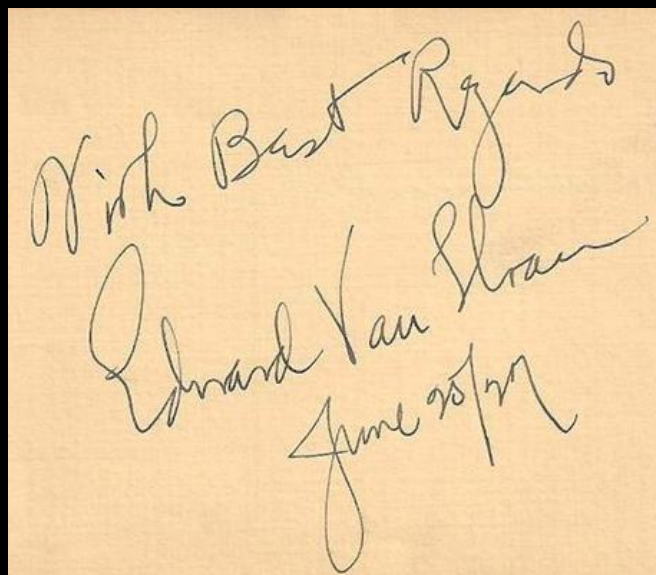 With Best Regards
Edward Van Sloan
June 25/27